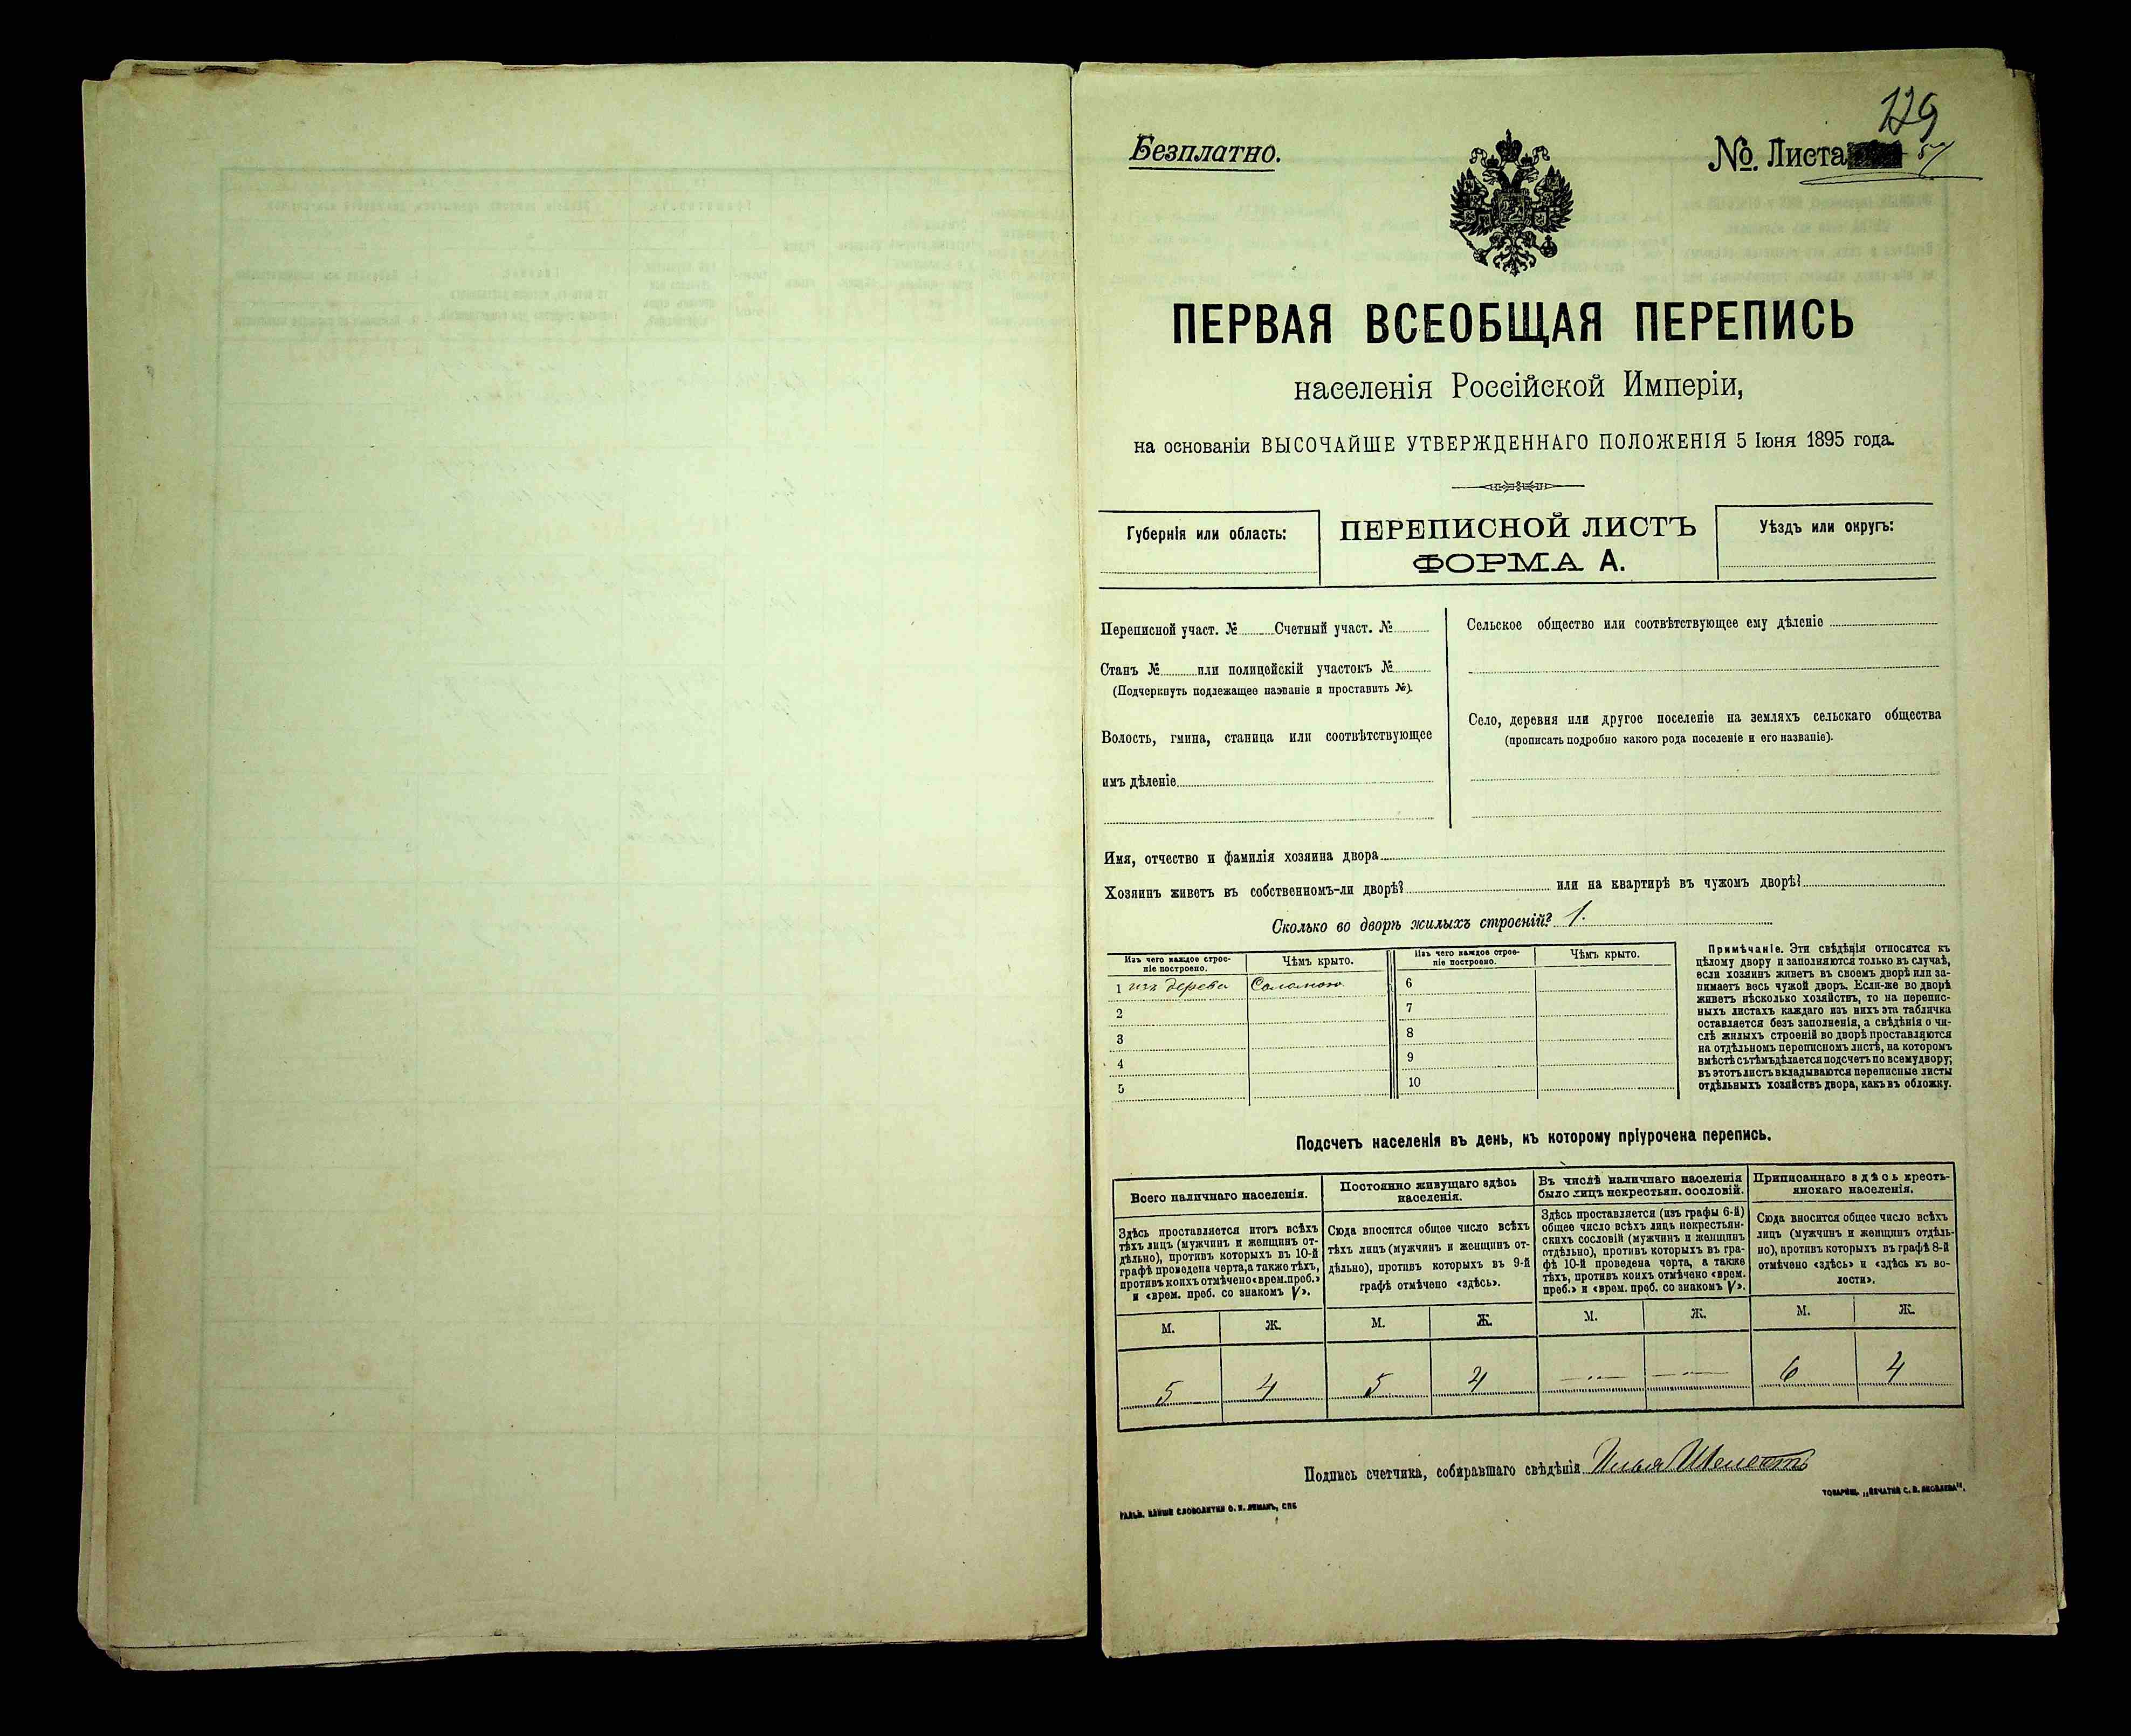 129
Безплатно.
№ Листа 57
ПЕРВАЯ ВСЕОБЩАЯ ПЕРЕПИСЬ
населенія Россійской Имперіи,
на основаніи ВЫСОЧАЙШЕ УТВЕРЖДЕННАГО ПОЛОЖЕНІЯ 5 Іюня 1895 года.
Губернія или область:
ПЕРЕПИСНОЙ ЛИСТЪ
ФОРМА А.
Уѣздъ или округъ:
Переписной участ. № Счетный участ. №
Станъ № или полицейскій участокъ №
(Подчеркнуть подлежащее названіе и проставить №).
Волость, гмина, станица или соотвѣтствующее
имъ дѣленіе
Сельское общество или соотвѣтствующее ему дѣленіе
Село, деревня или другое поселеніе на земляхъ сельскаго общества
(прописать подробно какого рода поселеніе и его названіе).
Имя, отчество и фамилія хозяина двора
Хозяинъ живетъ въ собственномъ-ли дворѣ? или на квартирѣ въ чужомъ дворѣ?
Сколько во дворѣ жилыхъ строеній? 1.
Изъ чего каждое строе-
ніе построено.
Чѣмъ крыто.
1 изъ дерева Соломою
2
3
4
5
Изъ чего каждое строе-
ніе построено.
Чѣмъ крыто.
6
7
8
9
10
Примѣчаніе. Эти свѣдѣнія относятся къ
цѣлому двору и заполняются только въ случаѣ,
если хозяинъ живетъ въ своемъ дворѣ или за-
нимаетъ весь чужой дворъ. Если-же во дворѣ
живетъ нѣсколько хозяйствъ, то на перепис-
ныхъ листахъ каждаго изъ нихъ эта табличка
оставляется безъ заполненія, а свѣдѣнія о чи-
слѣ жилыхъ строеній во дворѣ проставляются
на отдѣльномъ переписномъ листѣ, на которомъ
вмѣстѣ съ тѣмъ дѣлается подсчетъ по всему двору;
въ этотъ листъ вкладываются переписные листы
отдѣльныхъ хозяйствъ двора, какъ въ обложку.
Подсчетъ населенія въ день, къ которому пріурочена перепись.
Всего наличнаго населенія.
Здѣсь проставляется итогъ всѣхъ
тѣхъ лицъ (мужчинъ и женщинъ от-
дѣльно), противъ которыхъ въ 10-й
графѣ проведена черта, а также тѣхъ,
противъ коихъ отмѣчено «врем. преб.»
и «врем. преб. со знакомъ V».
М. Ж.
5 4
Постоянно живущаго здѣсь
населенія.
Сюда вносится общее число всѣхъ
тѣхъ лицъ (мужчинъ и женщинъ от-
дѣльно), противъ которыхъ въ 9-й
графѣ отмѣчено «здѣсь».
М. Ж.
5 4
Въ числѣ наличнаго населенія
было лицъ некрестьян. сословій.
Здѣсь проставляется (изъ графы 6-й)
общее число всѣхъ лицъ некрестьян-
скихъ сословій (мужчинъ и женщинъ
отдѣльно), противъ которыхъ въ гра-
фѣ 10-й проведена черта, а также
тѣхъ, противъ коихъ отмѣчено «врем.
преб.» и «врем. преб. со знакомъ V».
М. Ж.
Приписаннаго здѣсь кресть-
янскаго населенія.
Сюда вносится общее число всѣхъ
лицъ (мужчинъ и женщинъ отдѣль-
но), противъ которыхъ въ графѣ 8-й
отмѣчено «здѣсь» и «здѣсь къ во-
лости».
М. Ж.
6 4
Подпись счетчика, собиравшаго свѣдѣнія Илья Шелестъ
ТОВАРИЩ. „ПЕЧАТНЯ С. П. ЯКОВЛЕВА“.